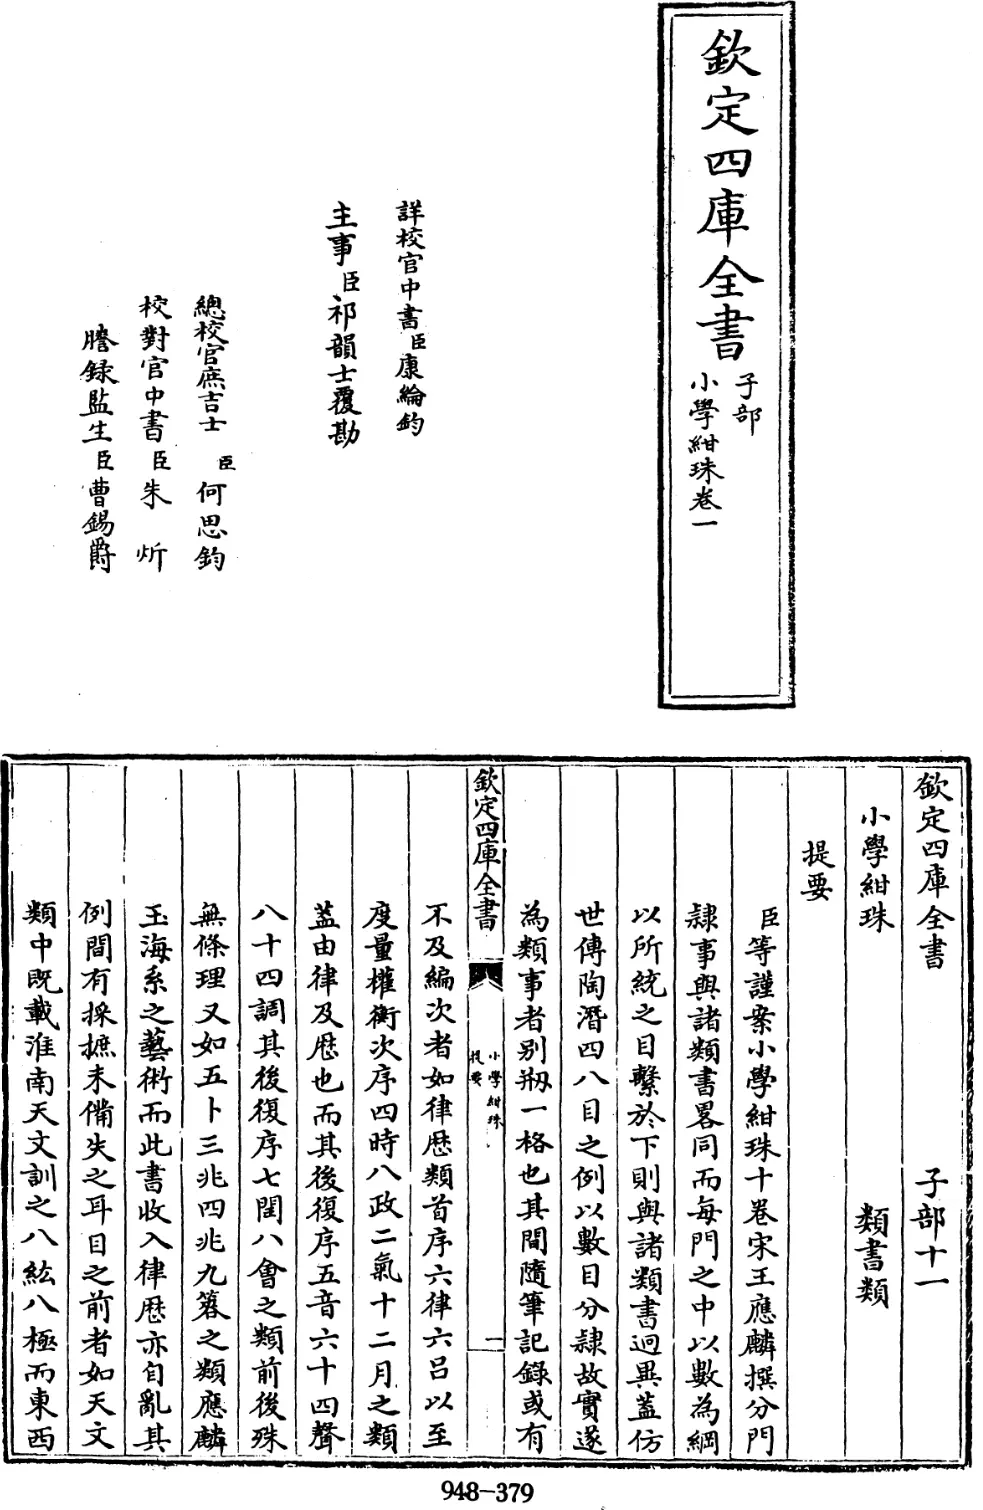 欽定四庫全書
子部
小學紺珠卷一
詳校官中書臣康綸鈞
主事臣祁韻士覆勘
總校官庶吉士臣何思鈞
校對官中書臣朱炘
謄録監生臣曹錫爵
欽定四庫全書 子部十一
小學紺珠 類書類
提要
臣等謹案小學紺珠十卷宋王應麟撰分門
隷事與諸類書畧同而每門之中以數為綱
以所統之目繫於下則與諸類書迥異蓋仿
世傳陶潛四八目之例以數目分隷故實遂
為類事者别刱一格也其間隨筆記録或有
欽定四庫全書
小學紺珠
提要
一
不及編次者如律歴類首序六律六吕以至
度量權衡次序四時八政二氣十二月之類
蓋由律及歴也而其後復序五音六十四聲
八十四調其後復序七閏八會之類前後殊
無條理又如五卜三兆四兆九簭之類應麟
玉海系之藝術而此書收入律歴亦自亂其
例間有採摭未備失之耳目之前者如天文
類中既載淮南天文訓之八紘八極而東西
948-379